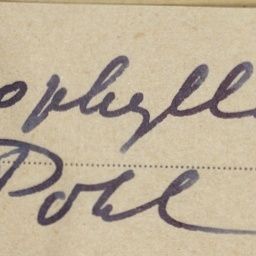 ophyll
Pohl